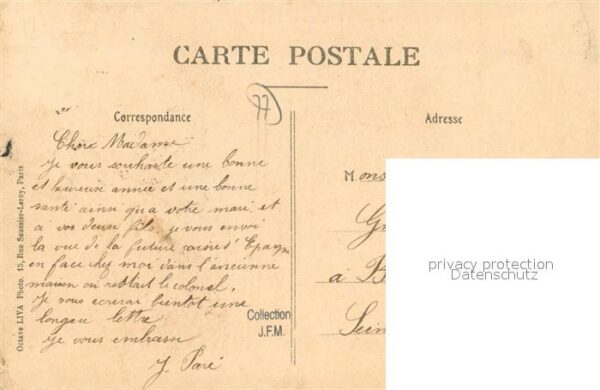 CARTE POSTALE
77
Correspondance
Adresse
Chère Madame
Je vous souhaite une bonne
et heureuse année et une bonne
santé ainsi qu'a votre mari, et
a vos deux fils, je vous envoi
la vue de la future caisse d'Epargne
en face chez moi dans l'ancienne
maison ou restait le colonel.
Je vous ecrirai bientot une
longeu lettre
Je vous embrasse
J. Paré
Mons
à B
Sein
privacy protection
Datenschutz
Collection
J.F.M.
Octave LIVA Photo. 15, Rue Saussier-Leroy, Paris